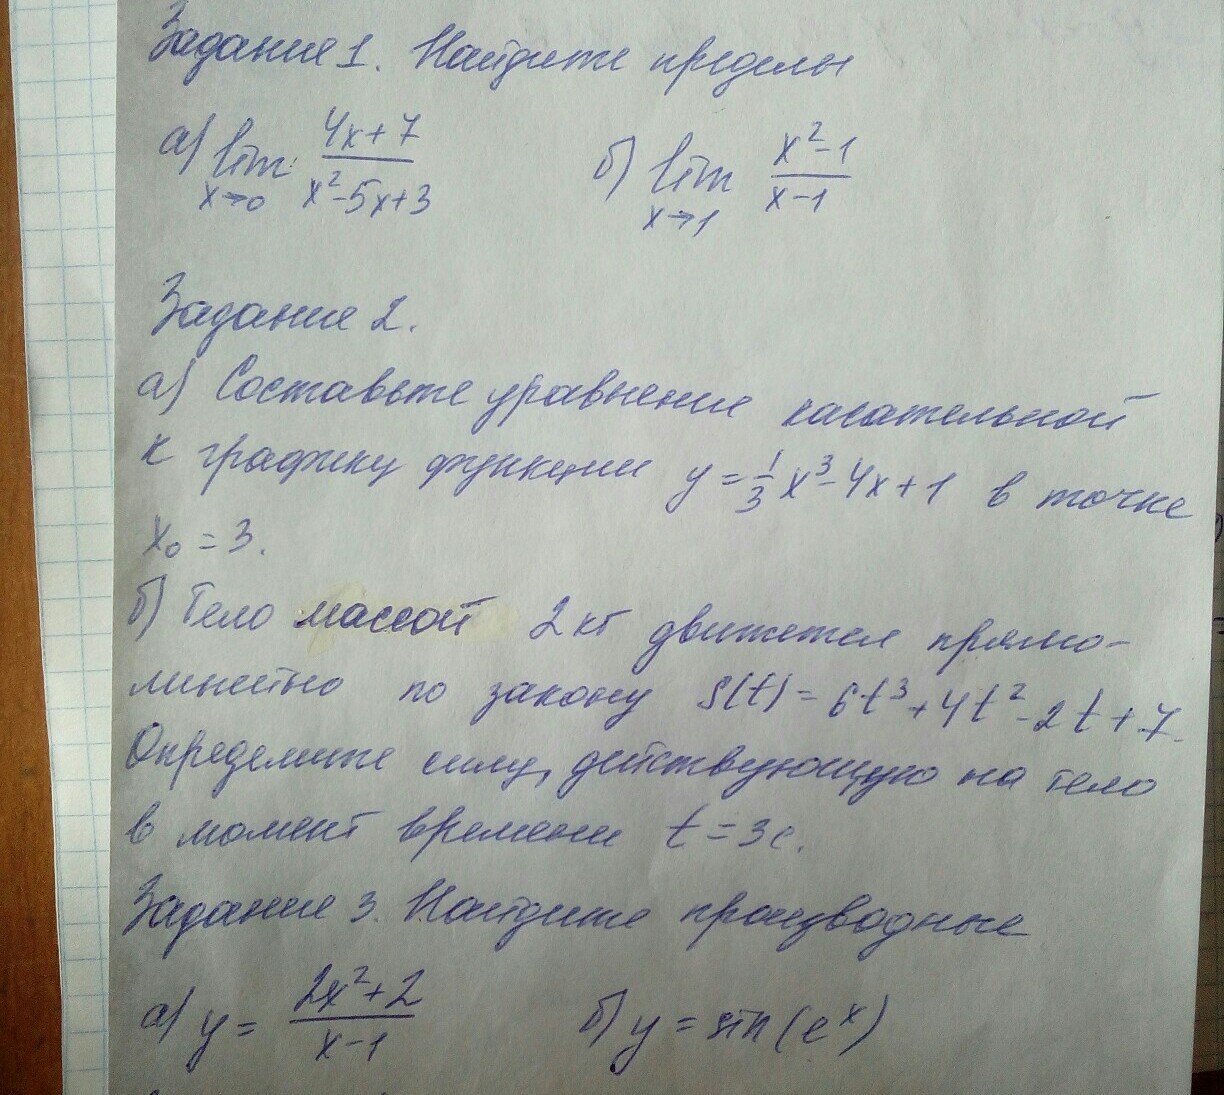 Задание 1. Найдите пределы
а) lim x→0 (4x+7)/(x²-5x+3) б) lim x→1 (x²-1)/(x-1)
Задание 2.
а) Составьте уравнение касательной
к графику функции y = 1/3 x³-4x+1 в точке
x₀ = 3.
б) Тело массой 2 кг движется прямо-
линейно по закону S(t) = 6t³+4t²-2t+7.
Определите силу, действующую на тело
в момент времени t = 3с.
Задание 3. Найдите производные
а) y = (2x²+2)/(x-1) б) y = sin(eˣ)